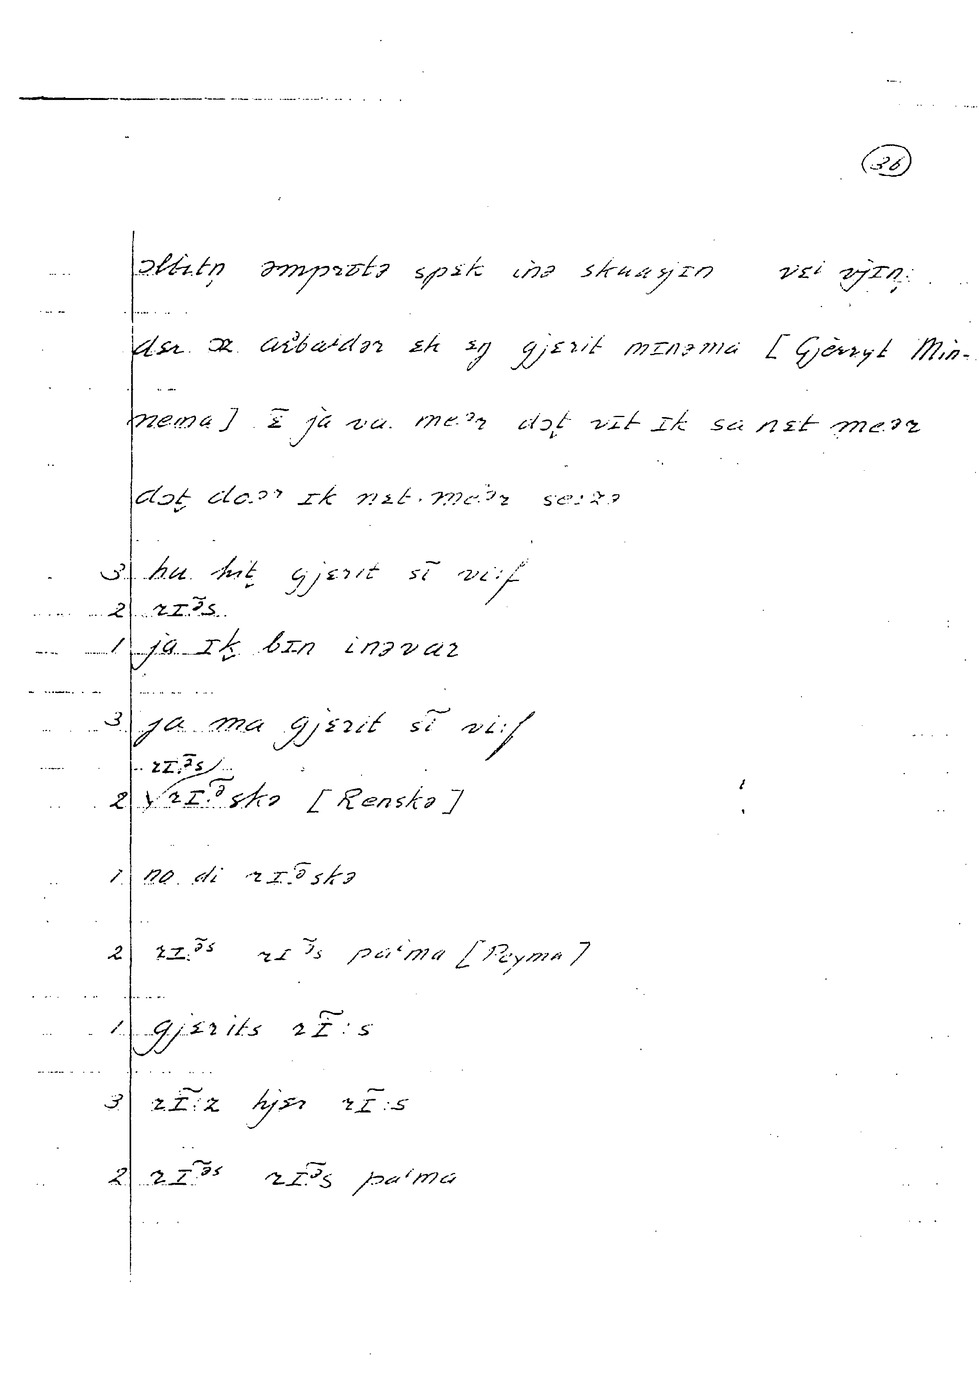 36
əlbɪtn̩ əmprɔtə spɛk inə skuayɪn vɛi vjɪn̩:
dɛr ɔ arbaⁱdər ɛk ɛŋ gjɛrit mɪnəma [Gjerryt Min-
nema] ɛ̄ ja va. me.ᵊr dɔt̬ vīt ɪk sa nɛt me.ər
dɔt̬ do.ᵊr ɪk nɛt. me.ᵊr se:zə
3 hu. hit̬ gjɛrit sī̃ vi:f
2 rɪ.ə̃s
1 ja ɪk̬ bɪn inəvar
3 ja ma gjɛrit sī̃ vi:f
rɪ.ə̃s
2 √rɪ.ə̃skə [Renskə]
1 no. di rɪ.ə̃skə
2 rɪ.ə̃s rɪ.ə̃s paⁱma [Peyma]
1 gjɛrits rɪ̃:s
3 rɪ̃:z hjɛr rɪ̃:s
2 rɪ.ə̃s rɪ.ə̃s paⁱma